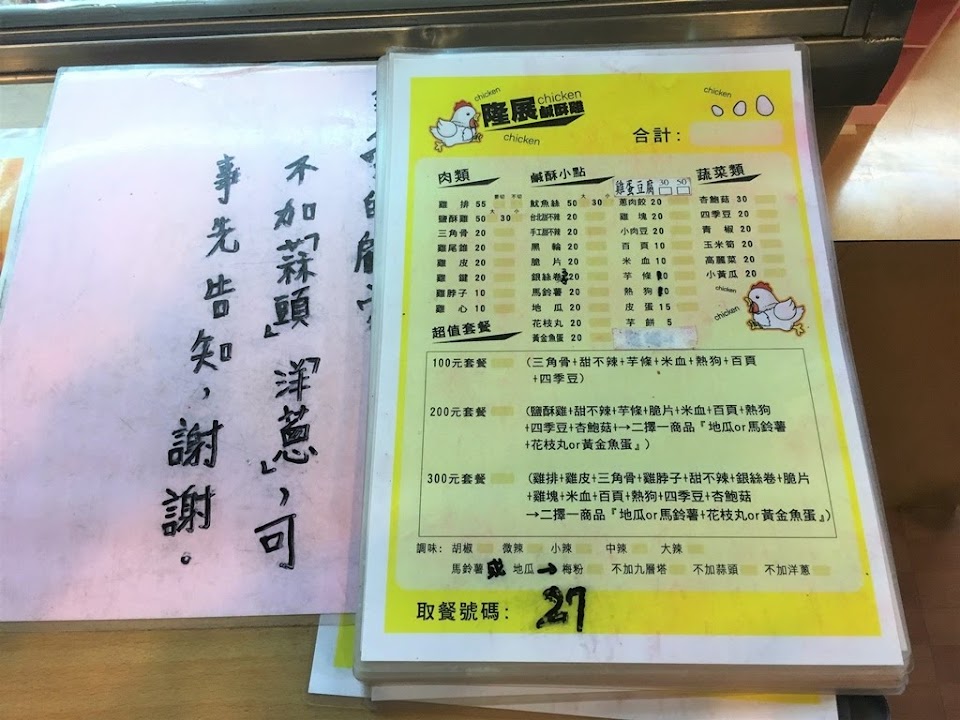 不加「蒜頭」「洋蔥」，可
事先告知，謝謝。
chicken
隆展鹹酥雞
chicken
chicken
chicken
合計:
肉類
雞排 55 要切 不切
鹽酥雞 50 大 30 小
三角骨 20
雞尾錐 20
雞皮 20
雞鍵 20
雞脖子 10
雞心 10
鹹酥小點
魷魚絲 50 大 30 小
台北甜不辣 20
手工甜不辣 20
黑輪 20
脆片 20
銀絲卷
馬鈴薯 20
地瓜 20
花枝丸 20
黃金魚蛋 20
雞蛋豆腐 30 50
蔥肉餃 20
雞塊 20
小肉豆 20
百頁 10
米血 10
芋條
熱狗
皮蛋 15
芋餅 5
蔬菜類
杏鮑菇 30
四季豆 20
青椒 20
玉米筍 20
高麗菜 20
小黃瓜 20
chicken
chicken
超值套餐
100元套餐 (三角骨+甜不辣+芋條+米血+熱狗+百頁
+四季豆)
200元套餐 (鹽酥雞+甜不辣+芋條+脆片+米血+百頁+熱狗
+四季豆+杏鮑菇+→二擇一商品『地瓜or馬鈴薯
+花枝丸or黃金魚蛋』)
300元套餐 (雞排+雞皮+三角骨+雞脖子+甜不辣+銀絲卷+脆片
+雞塊+米血+百頁+熱狗+四季豆+杏鮑菇
→二擇一商品『地瓜or馬鈴薯+花枝丸or黃金魚蛋』)
調味: 胡椒 微辣 小辣 中辣 大辣
馬鈴薯或地瓜→梅粉 不加九層塔 不加蒜頭 不加洋蔥
取餐號碼: 27